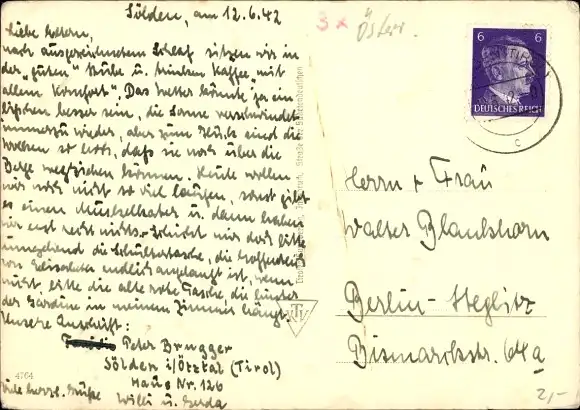 Sölden, am 12.6.42
Liebe Eltern,
nach ausgezeichnetem Schlaf sitzen wir in
der „guten“ Stube u. trinken Kaffee „mit
allem Komfort“. Das Wetter könnte ja ein
bißchen besser sein, die Sonne verschwindet
immerzu wieder, aber zum Glück sind die
Wolken so hoch, daß sie noch über die
Berge wegziehen können. Heute wollen
wir noch nicht so viel laufen, sonst gibt
es einen Muskelkater u. dann haben
wir erst recht nichts. Schickt mir doch bitte
umgehend die Schultertasche, die hoffentlich
von endlich angelangt ist, wenn
nicht, bitte die alte rote Tasche, die hinter
der Gardine in meinem Zimmer hängt.
Unsere Anschrift:
Peter Brugger
Sölden i/Ötztal (Tirol)
Haus Nr. 126
Viele herzl. Grüße
Willi u. Gerda
4764
3x
Österr.
6 6
DEUTSCHES REICH
c
Herrn + Frau
Walter Blankhorn
Berlin-Steglitz
Bismarckstr. 64a
2,-